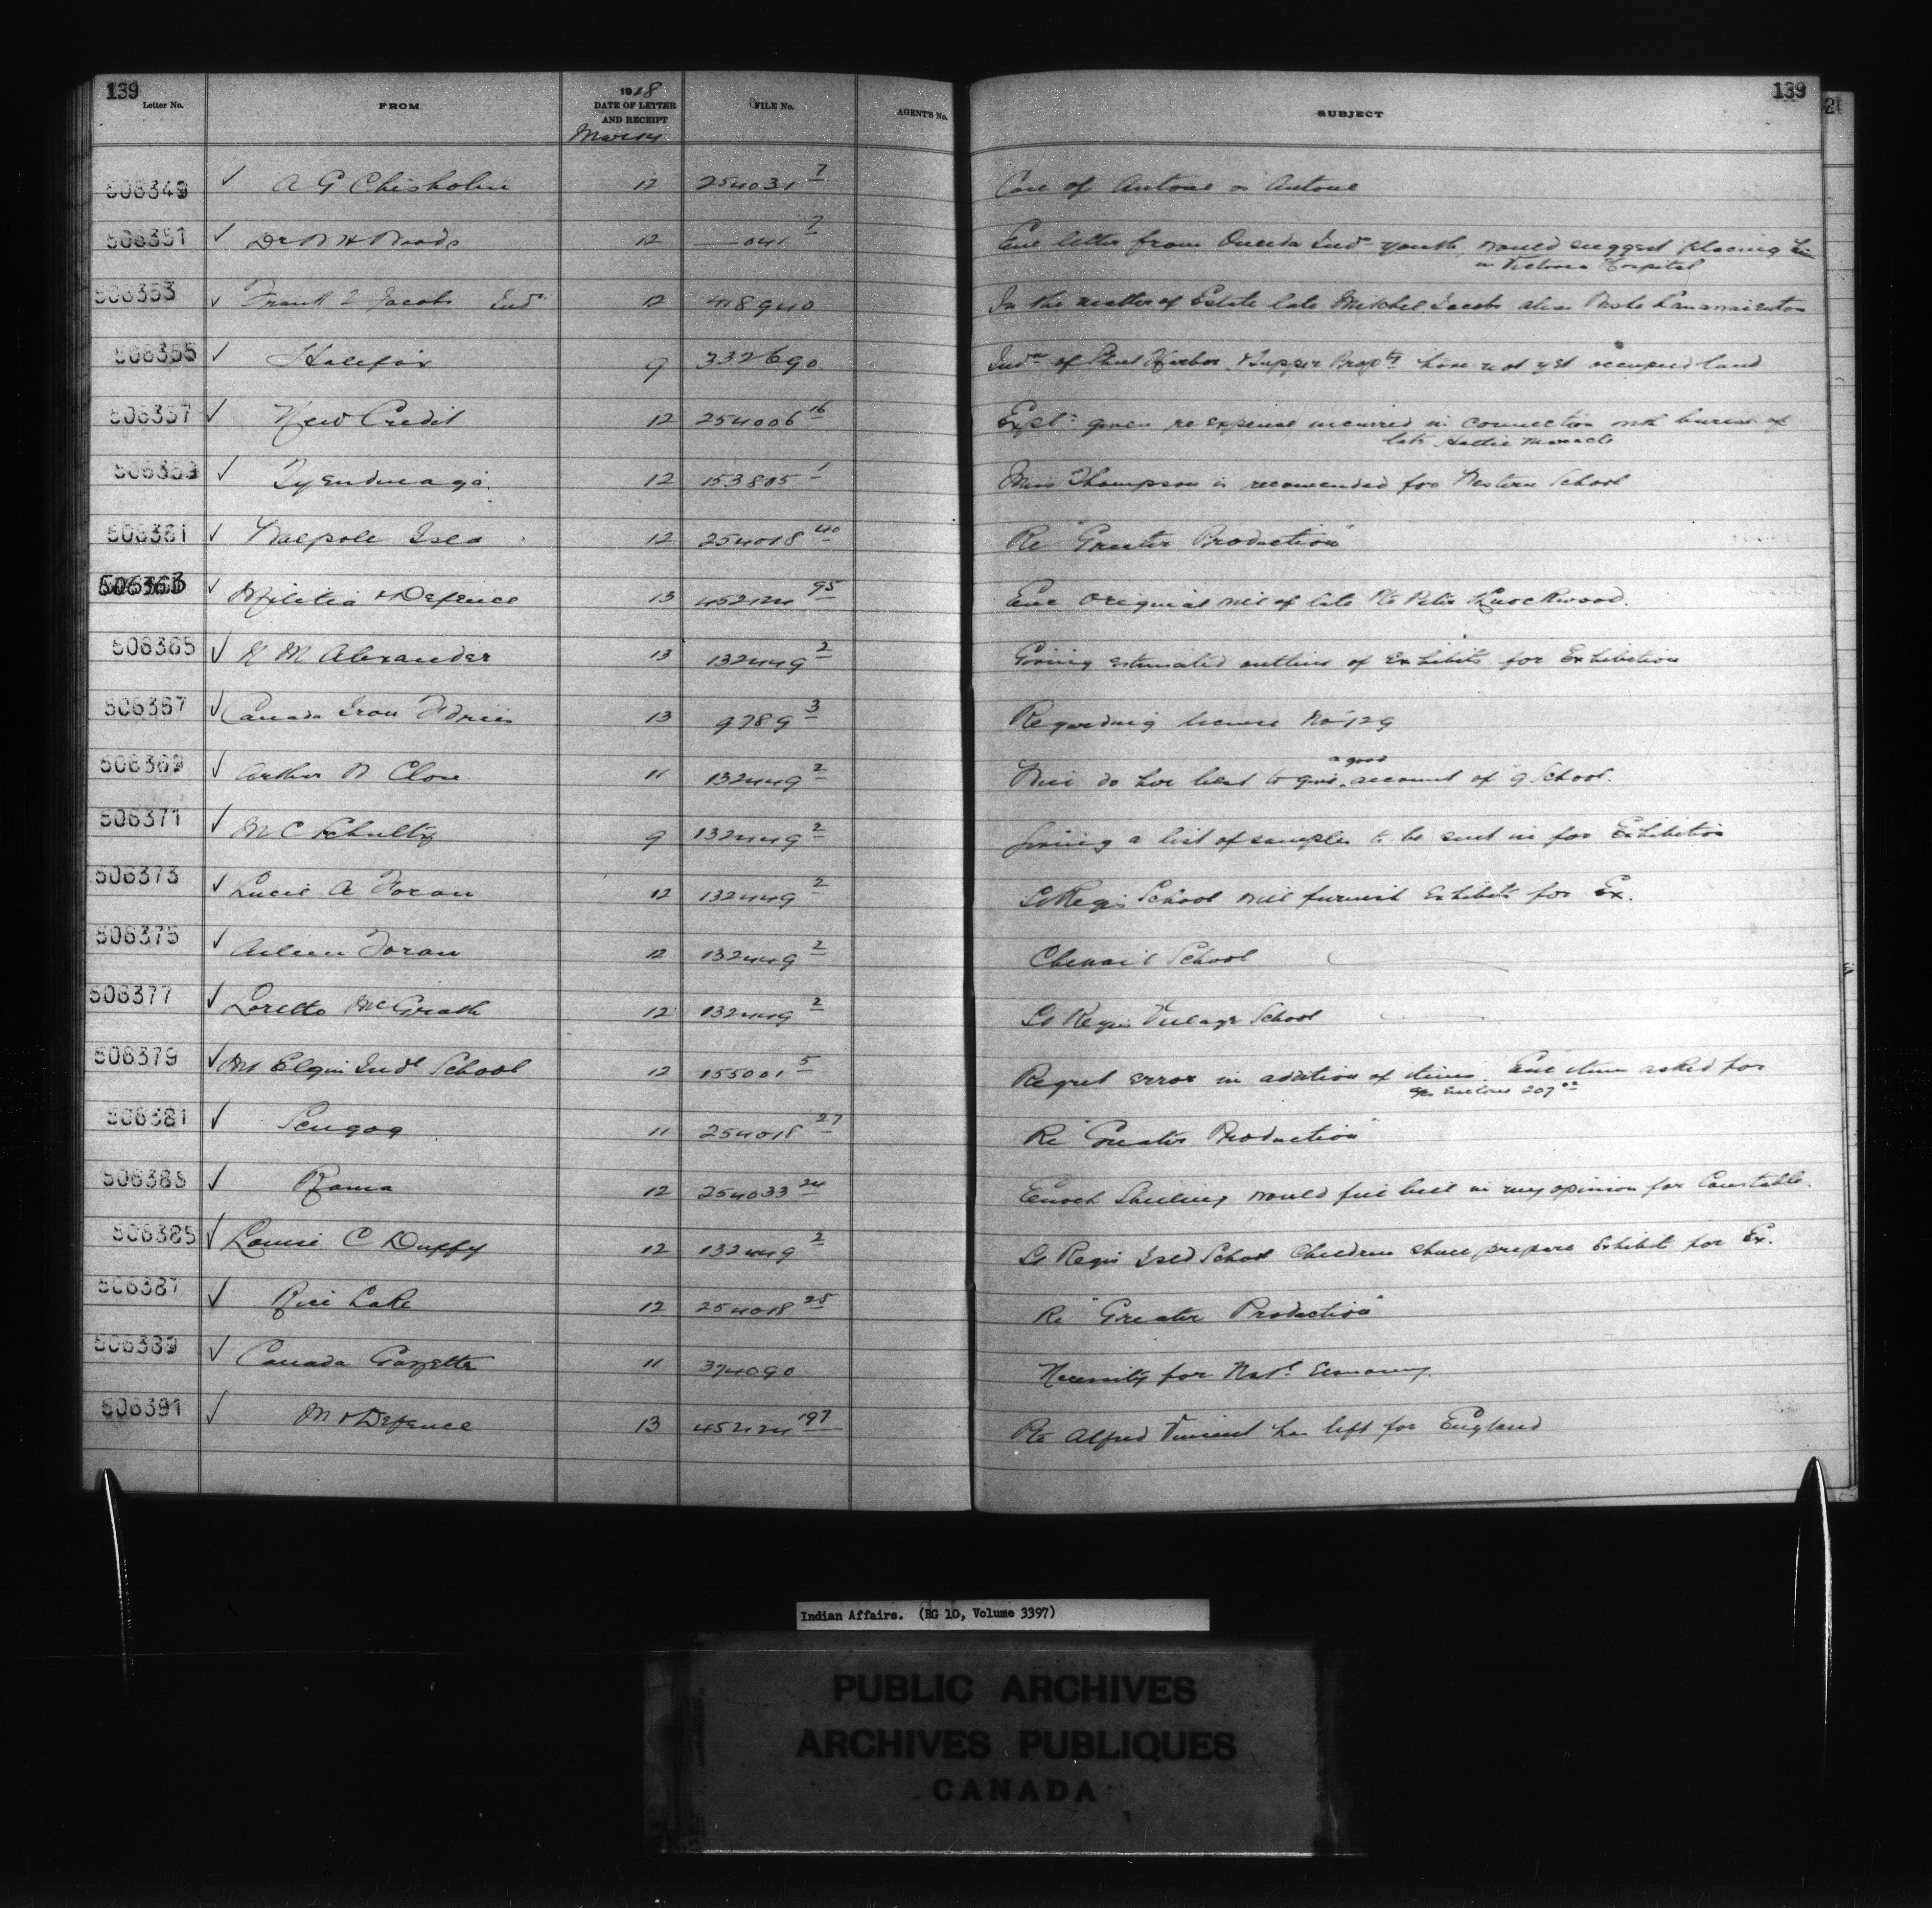 139
Letter No. FROM 1918 DATE OF LETTER AND RECEIPT FILE No. AGENT'S No. SUBJECT 139
March
21
506349 ✓ A G Chisholm 12 254031 7 Case of Antone vs Antone
506351 ✓ Dr Woods 12 —041 7 Enc letter from Oneida Indn youth, would suggest placing him
in Victoria Hospital
506353 ✓ Frank L Jacobs Indn 12 418940 In the matter of Estate late Mitchel Jacobs alias
506355 ✓ Halifax 9 332690 Indns of Harbor & Propty have not yet occupied land
506357 ✓ New Credit 12 254006 16 Expln given re expense incurred in connection with burial of
late Hattie
506359 ✓ Tyendinaga 12 153805 1 Miss Thompson is recomended for Western School
506361 ✓ Walpole Isld 12 254018 40 Re "Greater Production"
506363 ✓ Militia & Defence 13 452124 95 Enc original will of late Pte Peter Knockwood.
506365 ✓ M Alexander 13 132449 2 Giving estimated outline of exhibits for Exhibition
506367 ✓ Canada Iron Fdries 13 9789 3 Regarding license No 129
506369 ✓ Arthur Close 11 132449 2 Will do her best to give a good account of School.
506371 ✓ M C Schultz 9 132449 2 Giving a list of samples to be sent in for Exhibition
506373 ✓ Lucie A Foran 12 132449 2 St Regis School will furnish exhibits for Ex.
506375 ✓ Aileen Foran 12 132449 2 Chenail School
506377 ✓ Loretto McGrath 12 132449 2 St Regis Village School
506379 ✓ Mt Elgin Indl School 12 155001 5 Regret error in addition of items. Enc item asked for
enclose 207
506381 ✓ Scugog 11 254018 27 Re "Greater Production"
506383 ✓ Rama 12 254033 24 Enoch Shilling would fill bill in my opinion for Constable.
506385 ✓ Louise C Duffy 12 132449 2 St Regis Isld School Children shall prepare Exhibit for Ex.
506387 ✓ Rice Lake 12 254018 25 Re "Greater Production"
506389 ✓ Canada Gazette 11 374090 Necessity for Natl Economy.
506391 ✓ M & Defence 13 452124 197 Pte Alfred Vincent has left for England
Indian Affairs. (RG 10, Volume 3397)
PUBLIC ARCHIVES
ARCHIVES PUBLIQUES
CANADA